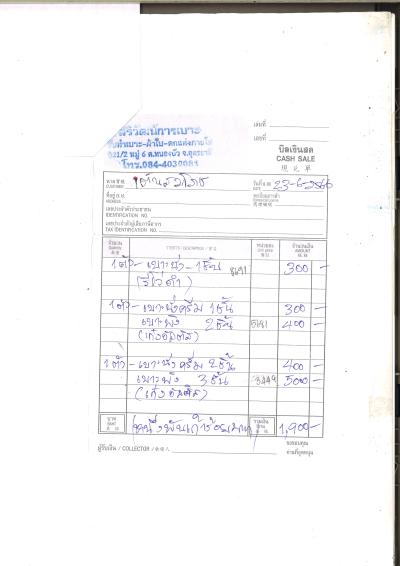 ศิริวัฒน์การเบาะ
รับทำเบาะ-ผ้าใบ-ตกแต่งภายใน
321/2 หมู่ 6 ต.หนองบัว จ.อุดรธานี
โทร.084-4030084
เล่มที่
เลขที่
บิลเงินสด
CASH SALE
現兑單
นาม
CUSTOMER
วันที่
DATE
23-6-2566
ที่อยู่
ADDRESS
เลขประจำตัวประชาชน
IDENTIFICATION NO.
เลขประจำตัวผู้เสียภาษีอากร
TAX IDENTIFICATION NO.
จำนวน
รายการ
หน่วยละ
จำนวนเงิน
1 ตัว - เบาะนั่ง - 1 ชิ้น 8691 300 -
(รีโว่ ดำ)
1 ตัว - เบาะนั่งครีม 1 ชิ้น 300 -
เบาะพิง 2 ชิ้น 5181 400 -
(เก๋งอัลติส)
1 ตัว - เบาะนั่งครีม 2 ชิ้น 400 -
เบาะพิง 3 ชิ้น 3449 500 -
(เก๋งอัลติส)
บาท
BAHT
(หนึ่งพันเก้าร้อยบาท)
รวมเงิน
1,900 -
ผู้รับเงิน / COLLECTOR /
ขอขอบคุณ
ท่านที่อุดหนุน